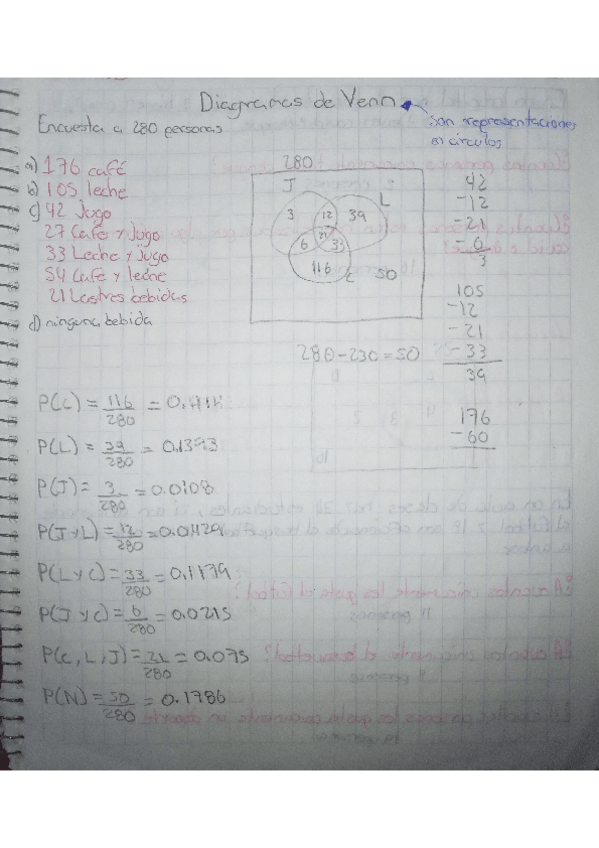 Diagramas de Venn
son representaciones
en circulos
Encuesta a 280 personas
a) 176 café
b) 105 leche
c) 42 Jugo
27 Café y Jugo
33 Leche y Jugo
54 Café y leche
21 Las tres bebidas
d) ninguna bebida
280
J
L
3
12
39
21
6
33
116
C
50
280-230=50
42
-12
-21
-6
3
105
-12
-21
-33
39
176
-60
P(C) = 116/280 =
P(L) = 39/280 = 0.1393
P(J) = 3/280 = 0.0108
P(J y L) = 12/280 = 0.0429
P(L y C) = 33/280 = 0.1179
P(J y C) = 6/280 = 0.0215
P(C, L, J) = 21/280 = 0.075
P(N) = 50/280 = 0.1786